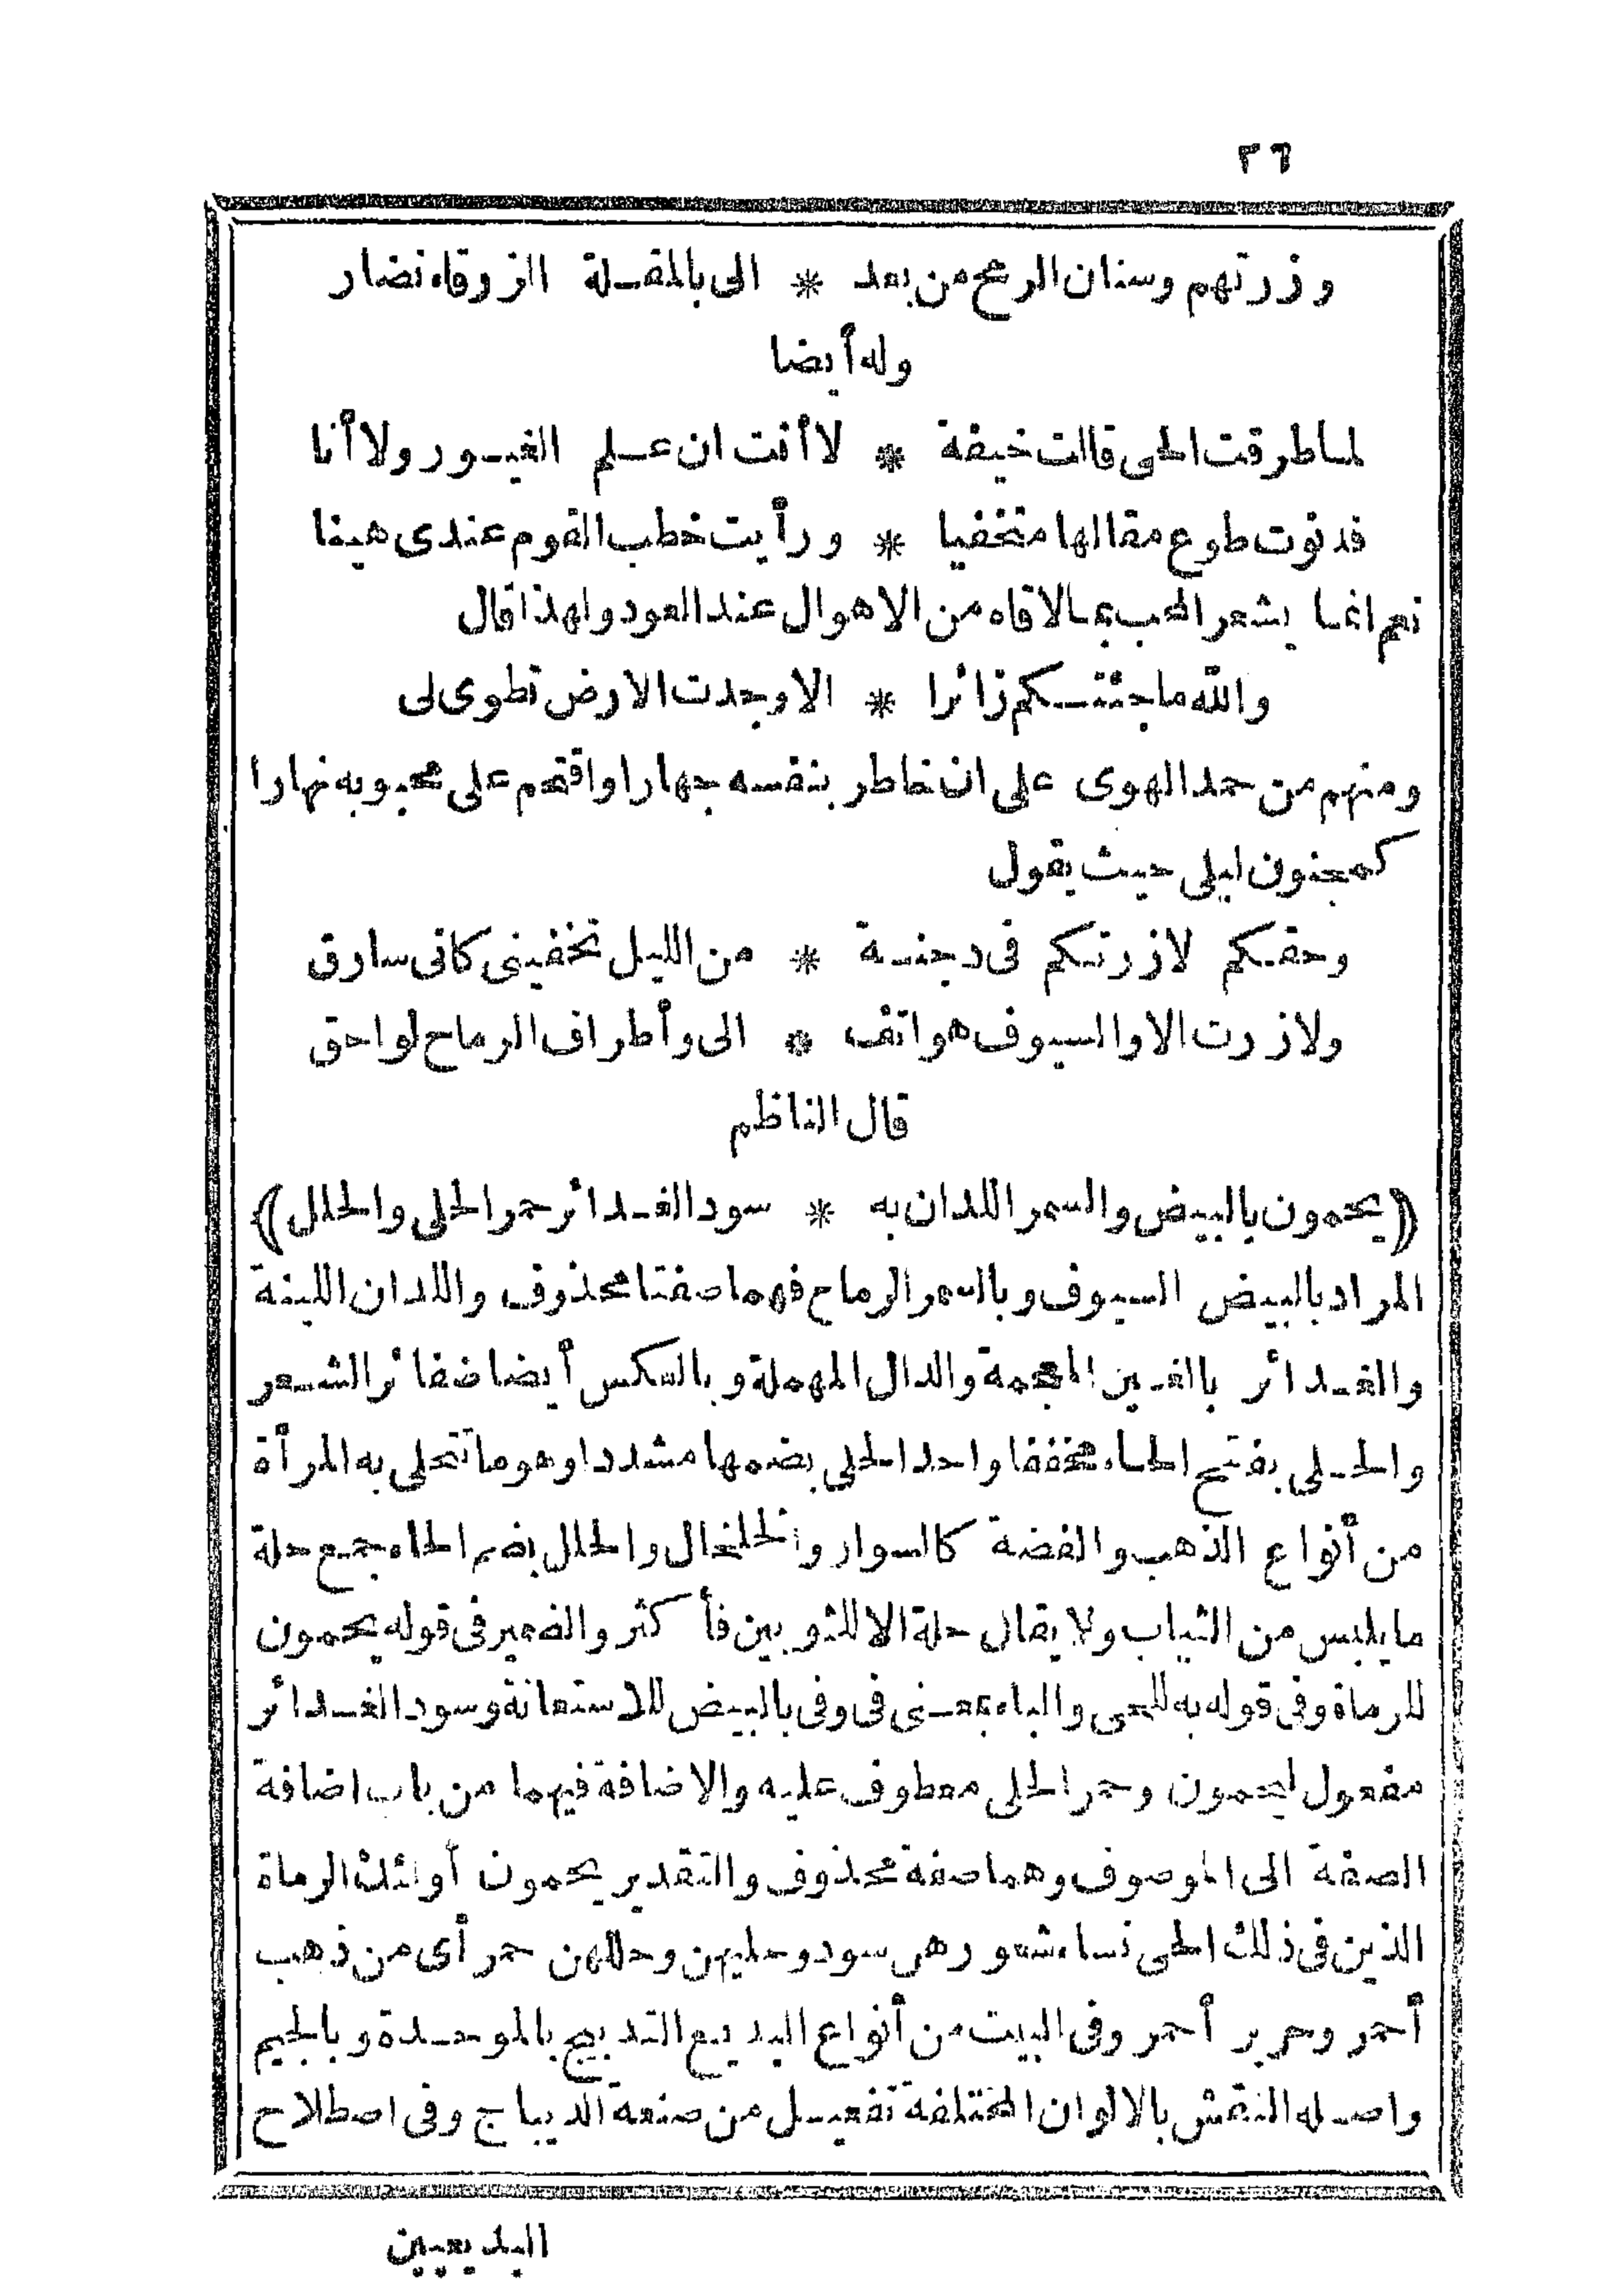 ٢٦
وزرتهم وسنان الرمح من بعد * الى بالمقلة الزرقاء نضار
وله أيضا
لما طرقت الحى قالت خيفة * لا أنت ان علم الغيور ولا أنا
فدنوت طوع مقالها متخفيا * ورأيت خطب القوم عندى هينا
نعم انما يشعر المحب بما لاقاه من الاهوال عند العود ولهذا قال
والله ما جئتكم زائرا * الا وجدت الارض تطوى لى
ومنهم من حمد الهوى على ان خاطر بنفسه جهارا واقتحم على محبوبه نهارا
كمجنون ليلى حيث يقول
وحقكم لا زرتكم فى دجنة * من الليل تخفينى كانى سارق
ولا زرت الا والسيوف هواتف * الى وأطراف الرماح لواحق
قال الناظم
﴿يحمون بالبيض والسمر اللدان به * سود الغدائر حمر الحلى والحلل﴾
المراد بالبيض السيوف وبالسمر الرماح فهما صفتا محذوف واللدان اللينة
والغدائر بالغين المعجمة والدال المهملة وبالعكس أيضا ضفائر الشعر
والحلى بفتح الحاء مخففا واحد الحلى بضمها مشددا وهو ما تتحلى به المرأة
من أنواع الذهب والفضة كالسوار والخلخال والحلل بضم الحاء جمع حلة
ما يلبس من الثياب ولا يقال حلة الا للثوبين فأكثر والضمير فى قوله يحمون
للرماة وفى قوله به للحى والباء بمعنى فى وفى بالبيض للاستعانة وسود الغدائر
مفعول ليحمون وحمر الحلى معطوف عليه والاضافة فيهما من باب اضافة
الصفة الى الموصوف وهما صفة محذوف والتقدير يحمون أولئك الرماة
الذين فى ذلك الحى نساء شعورهن سود وحليهن وحللهن حمر أى من ذهب
أحمر وحرير أحمر وفى البيت من أنواع البديع التدبيج بالموحدة وبالجيم
واصله النقش بالالوان المختلفة تفعيل من صنعة الديباج وفى اصطلاح
البديعيين